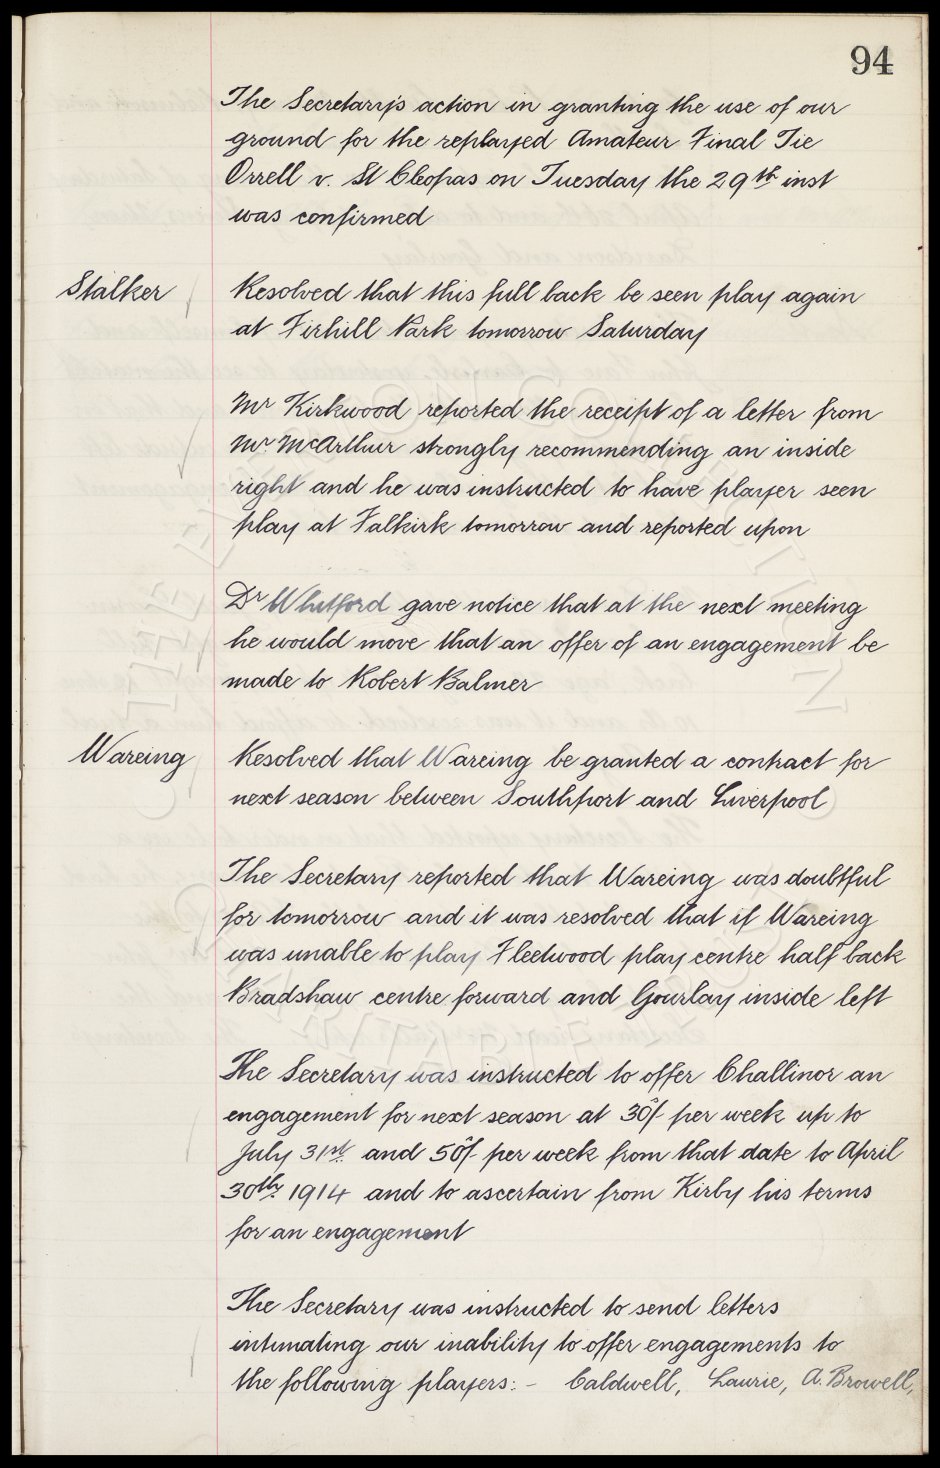 94
The Secretary's action in granting the use of our
ground for the replayed Amateur Final Tie
Orrell v. St Cleopas on Tuesday the 29th inst
was confirmed
Stalker
Resolved that this full back be seen play again
at Firhill Park tomorrow Saturday
Mr Kirkwood reported the receipt of a letter from
Mr. McArthur strongly recommending an inside
right and he was instructed to have player seen
play at Falkirk tomorrow and reported upon
Dr Whitford gave notice that at the next meeting
he would move that an offer of an engagement be
made to Robert Balmer
Wareing
Resolved that Wareing be granted a contract for
next season between Southport and Liverpool
The Secretary reported that Wareing was doubtful
for tomorrow and it was resolved that if Wareing
was unable to play Fleetwood play centre half back
Bradshaw centre forward and Gourlay inside left
The Secretary was instructed to offer Challinor an
engagement for next season at 30/- per week up to
July 31st and 50/- per week from that date to April
30th 1914 and to ascertain from Kirby his terms
for an engagement
The Secretary was instructed to send letters
intimating our inability to offer engagements to
the following players:- Caldwell, Laurie, A. Browell,